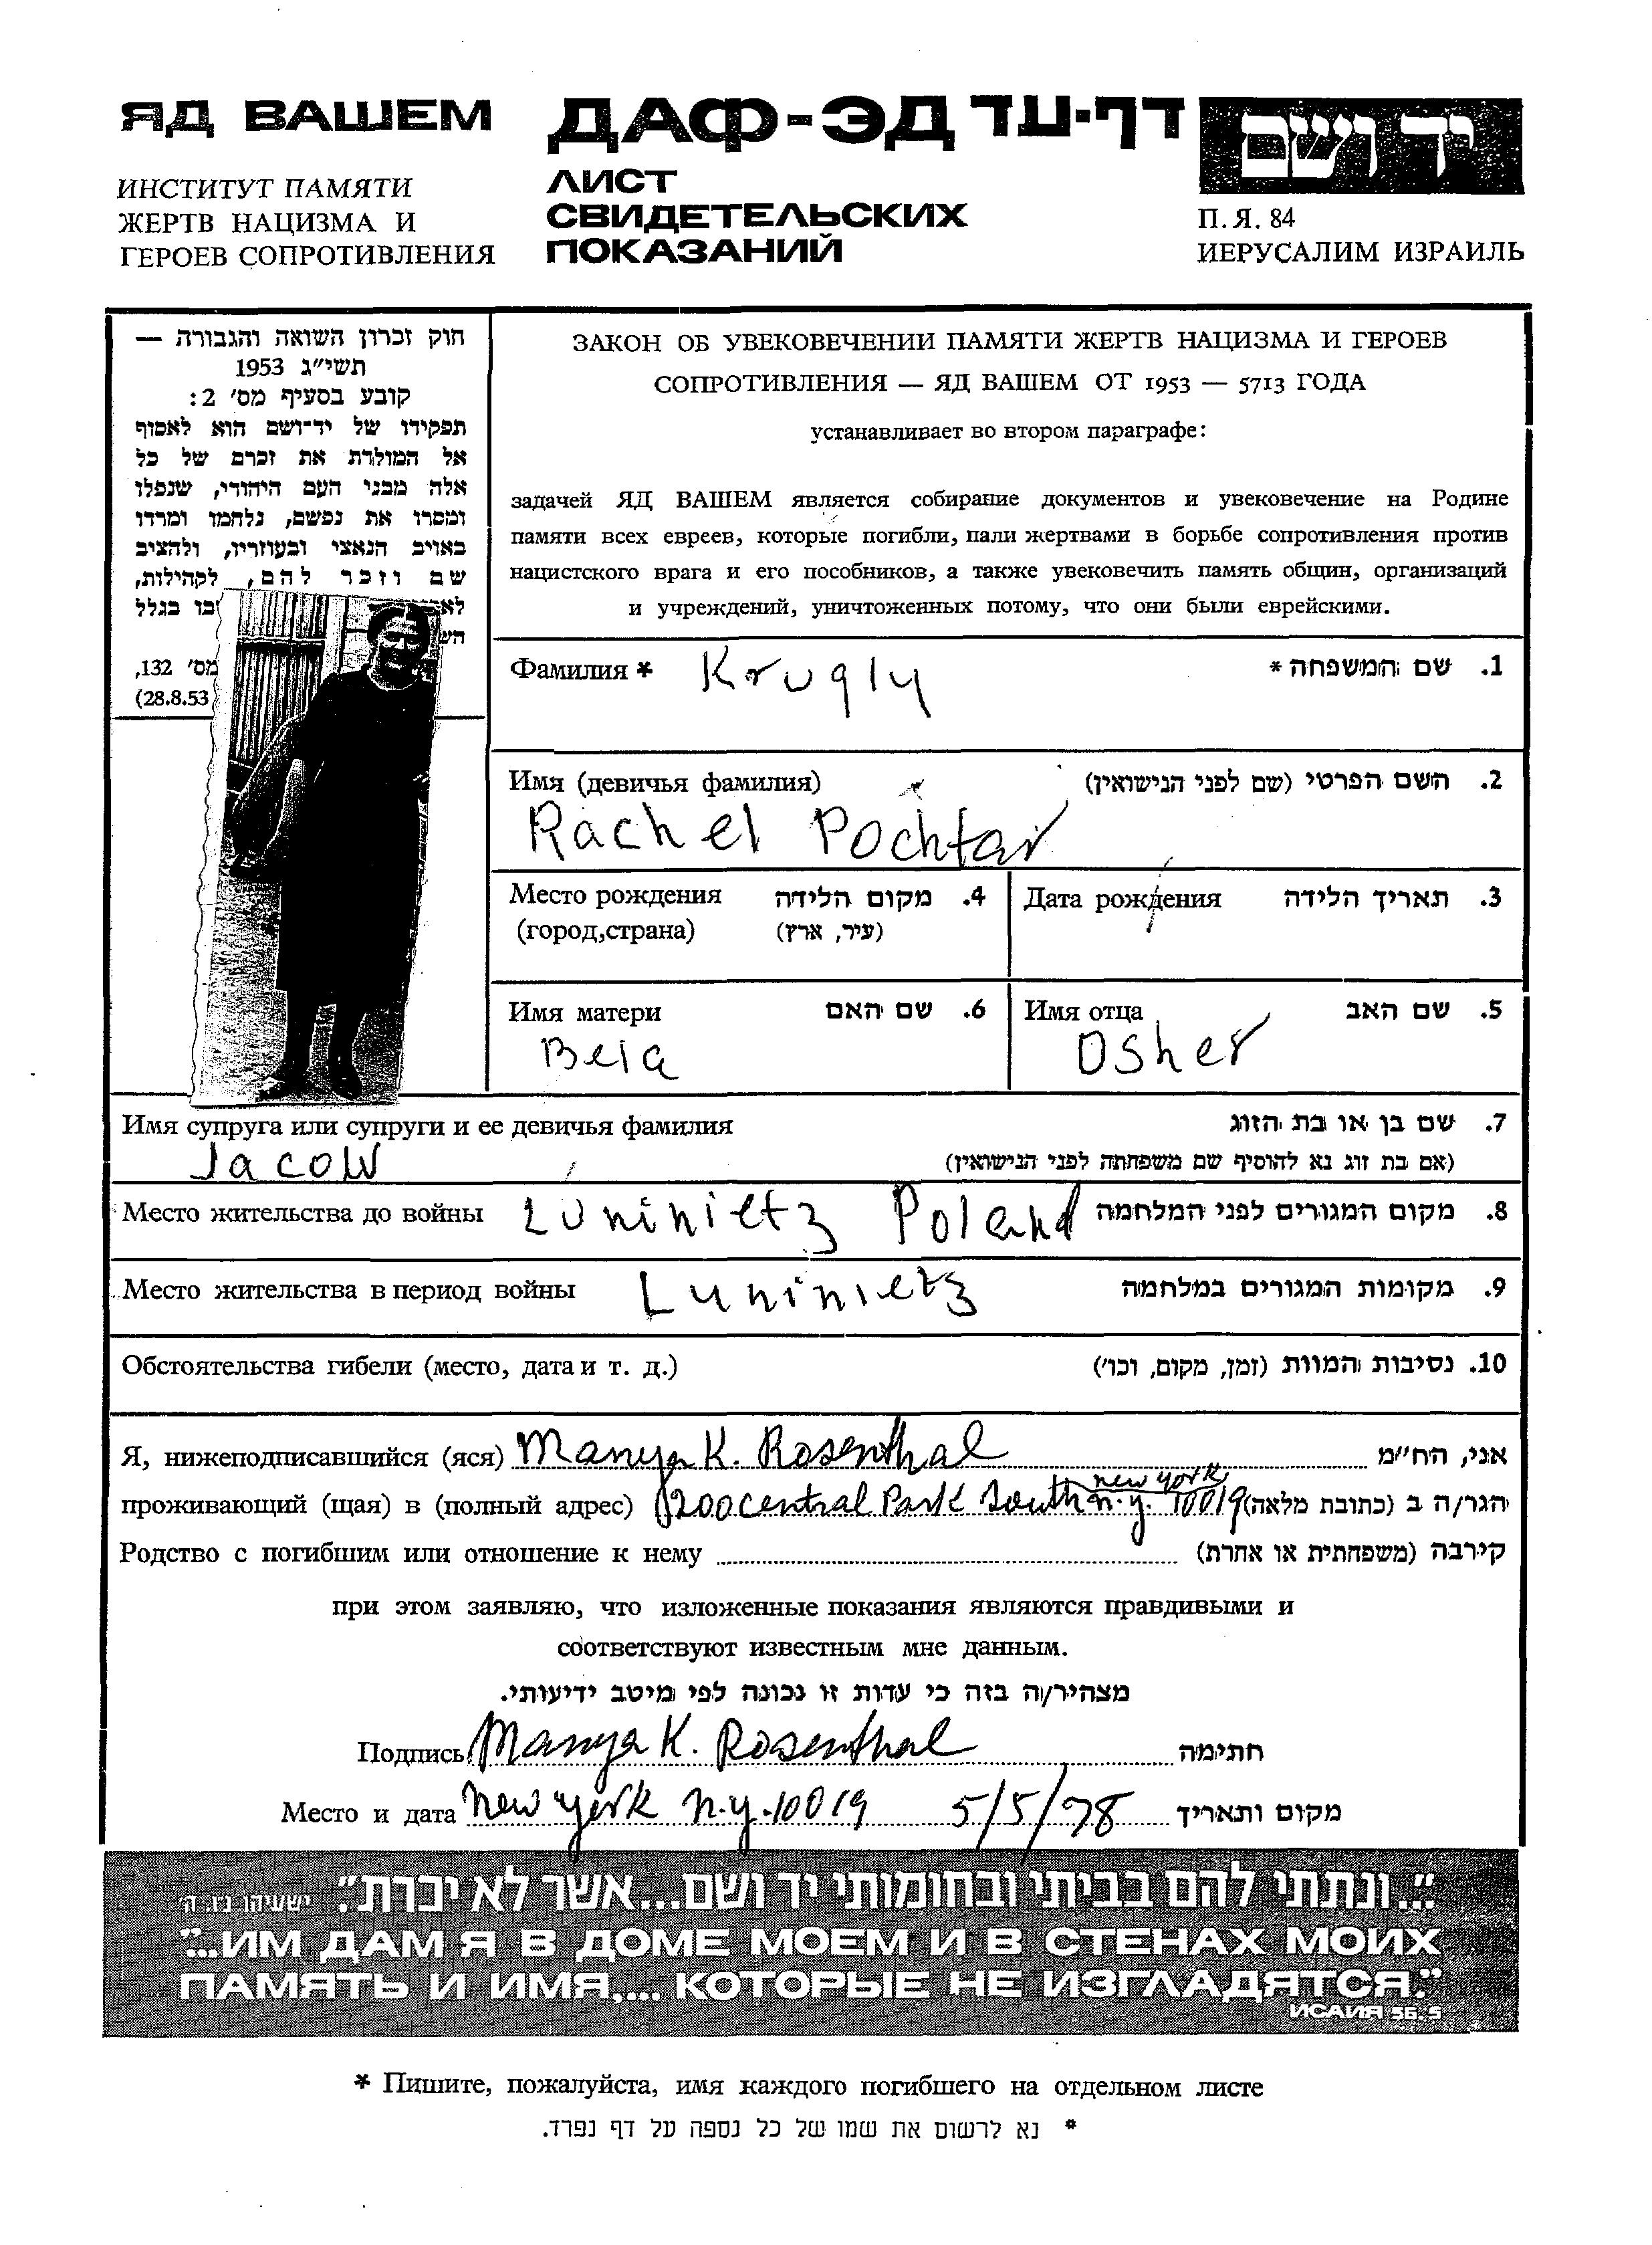 ЯД ВАШЕМ
ИНСТИТУТ ПАМЯТИ
ЖЕРТВ НАЦИЗМА И
ГЕРОЕВ СОПРОТИВЛЕНИЯ
ДАФ-ЭД דף-עד
ЛИСТ
СВИДЕТЕЛЬСКИХ
ПОКАЗАНИЙ
יד ושם
П. Я. 84
ИЕРУСАЛИМ ИЗРАИЛЬ
חוק זכרון השואה והגבורה —
תשי״ג 1953
קובע בסעיף מס׳ 2:
תפקידו של יד־ושם הוא לאסוף
אל המולדת את זכרם של כל
אלה מבני העם היהודי, שנפלו
ומסרו את נפשם, נלחמו ומרדו
באויב הנאצי ובעוזריו, ולהציב
שם וזכר להם, לקהילות,
בגלל
מס׳ 132,
(28.8.53
ЗАКОН ОБ УВЕКОВЕЧЕНИИ ПАМЯТИ ЖЕРТВ НАЦИЗМА И ГЕРОЕВ
СОПРОТИВЛЕНИЯ — ЯД ВАШЕМ ОТ 1953 — 5713 ГОДА
устанавливает во втором параграфе:
задачей ЯД ВАШЕМ является собирание документов и увековечение на Родине
памяти всех евреев, которые погибли, пали жертвами в борьбе сопротивления против
нацистского врага и его пособников, а также увековечить память общин, организаций
и учреждений, уничтоженных потому, что они были еврейскими.
Фамилия * Krugly שם המשפחה * .1
Имя (девичья фамилия) השם הפרטי (שם לפני הנישואין) .2
Rachel Pochtar
Место рождения מקום הלידה .4
(город,страна) (עיר, ארץ)
Дата рождения תאריך הלידה .3
Имя матери שם האם .6
Beia
Имя отца שם האב .5
Osher
Имя супруга или супруги и ее девичья фамилия שם בן או בת הזוג .7
Jacow (אם בת זוג נא להוסיף שם משפחתה לפני הנישואין)
Место жительства до войны Luninietz Poland מקום המגורים לפני המלחמה .8
Место жительства в период войны Luninietz מקומות המגורים במלחמה .9
Обстоятельства гибели (место, дата и т. д.) נסיבות המוות (זמן, מקום, וכו׳) .10
Я, нижеподписавшийся (яся) Manya K. Rosenthal אני, הח״מ
new york
проживающий (щая) в (полный адрес) 200 central Park South n.y. 10019 הגר/ה ב (כתובת מלאה)
Родство с погибшим или отношение к нему קירבה (משפחתית או אחרת)
при этом заявляю, что изложенные показания являются правдивыми и
соответствуют известным мне данным.
מצהיר/ה בזה כי עדות זו נכונה לפי מיטב ידיעותי.
Подпись Manya K. Rosenthal חתימה
Место и дата New york n.y. 10019 5/5/78 מקום ותאריך
"...ונתתי להם בביתי ובחומותי יד ושם...אשר לא יכרת". ישעיהו נ״ו. ה׳
"...ИМ ДАМ Я В ДОМЕ МОЕМ И В СТЕНАХ МОИХ
ПАМЯТЬ И ИМЯ,... КОТОРЫЕ НЕ ИЗГЛАДЯТСЯ."
ИСАИЯ 56.5
* Пишите, пожалуйста, имя каждого погибшего на отдельном листе
* נא לרשום את שמו של כל נספה על דף נפרד.